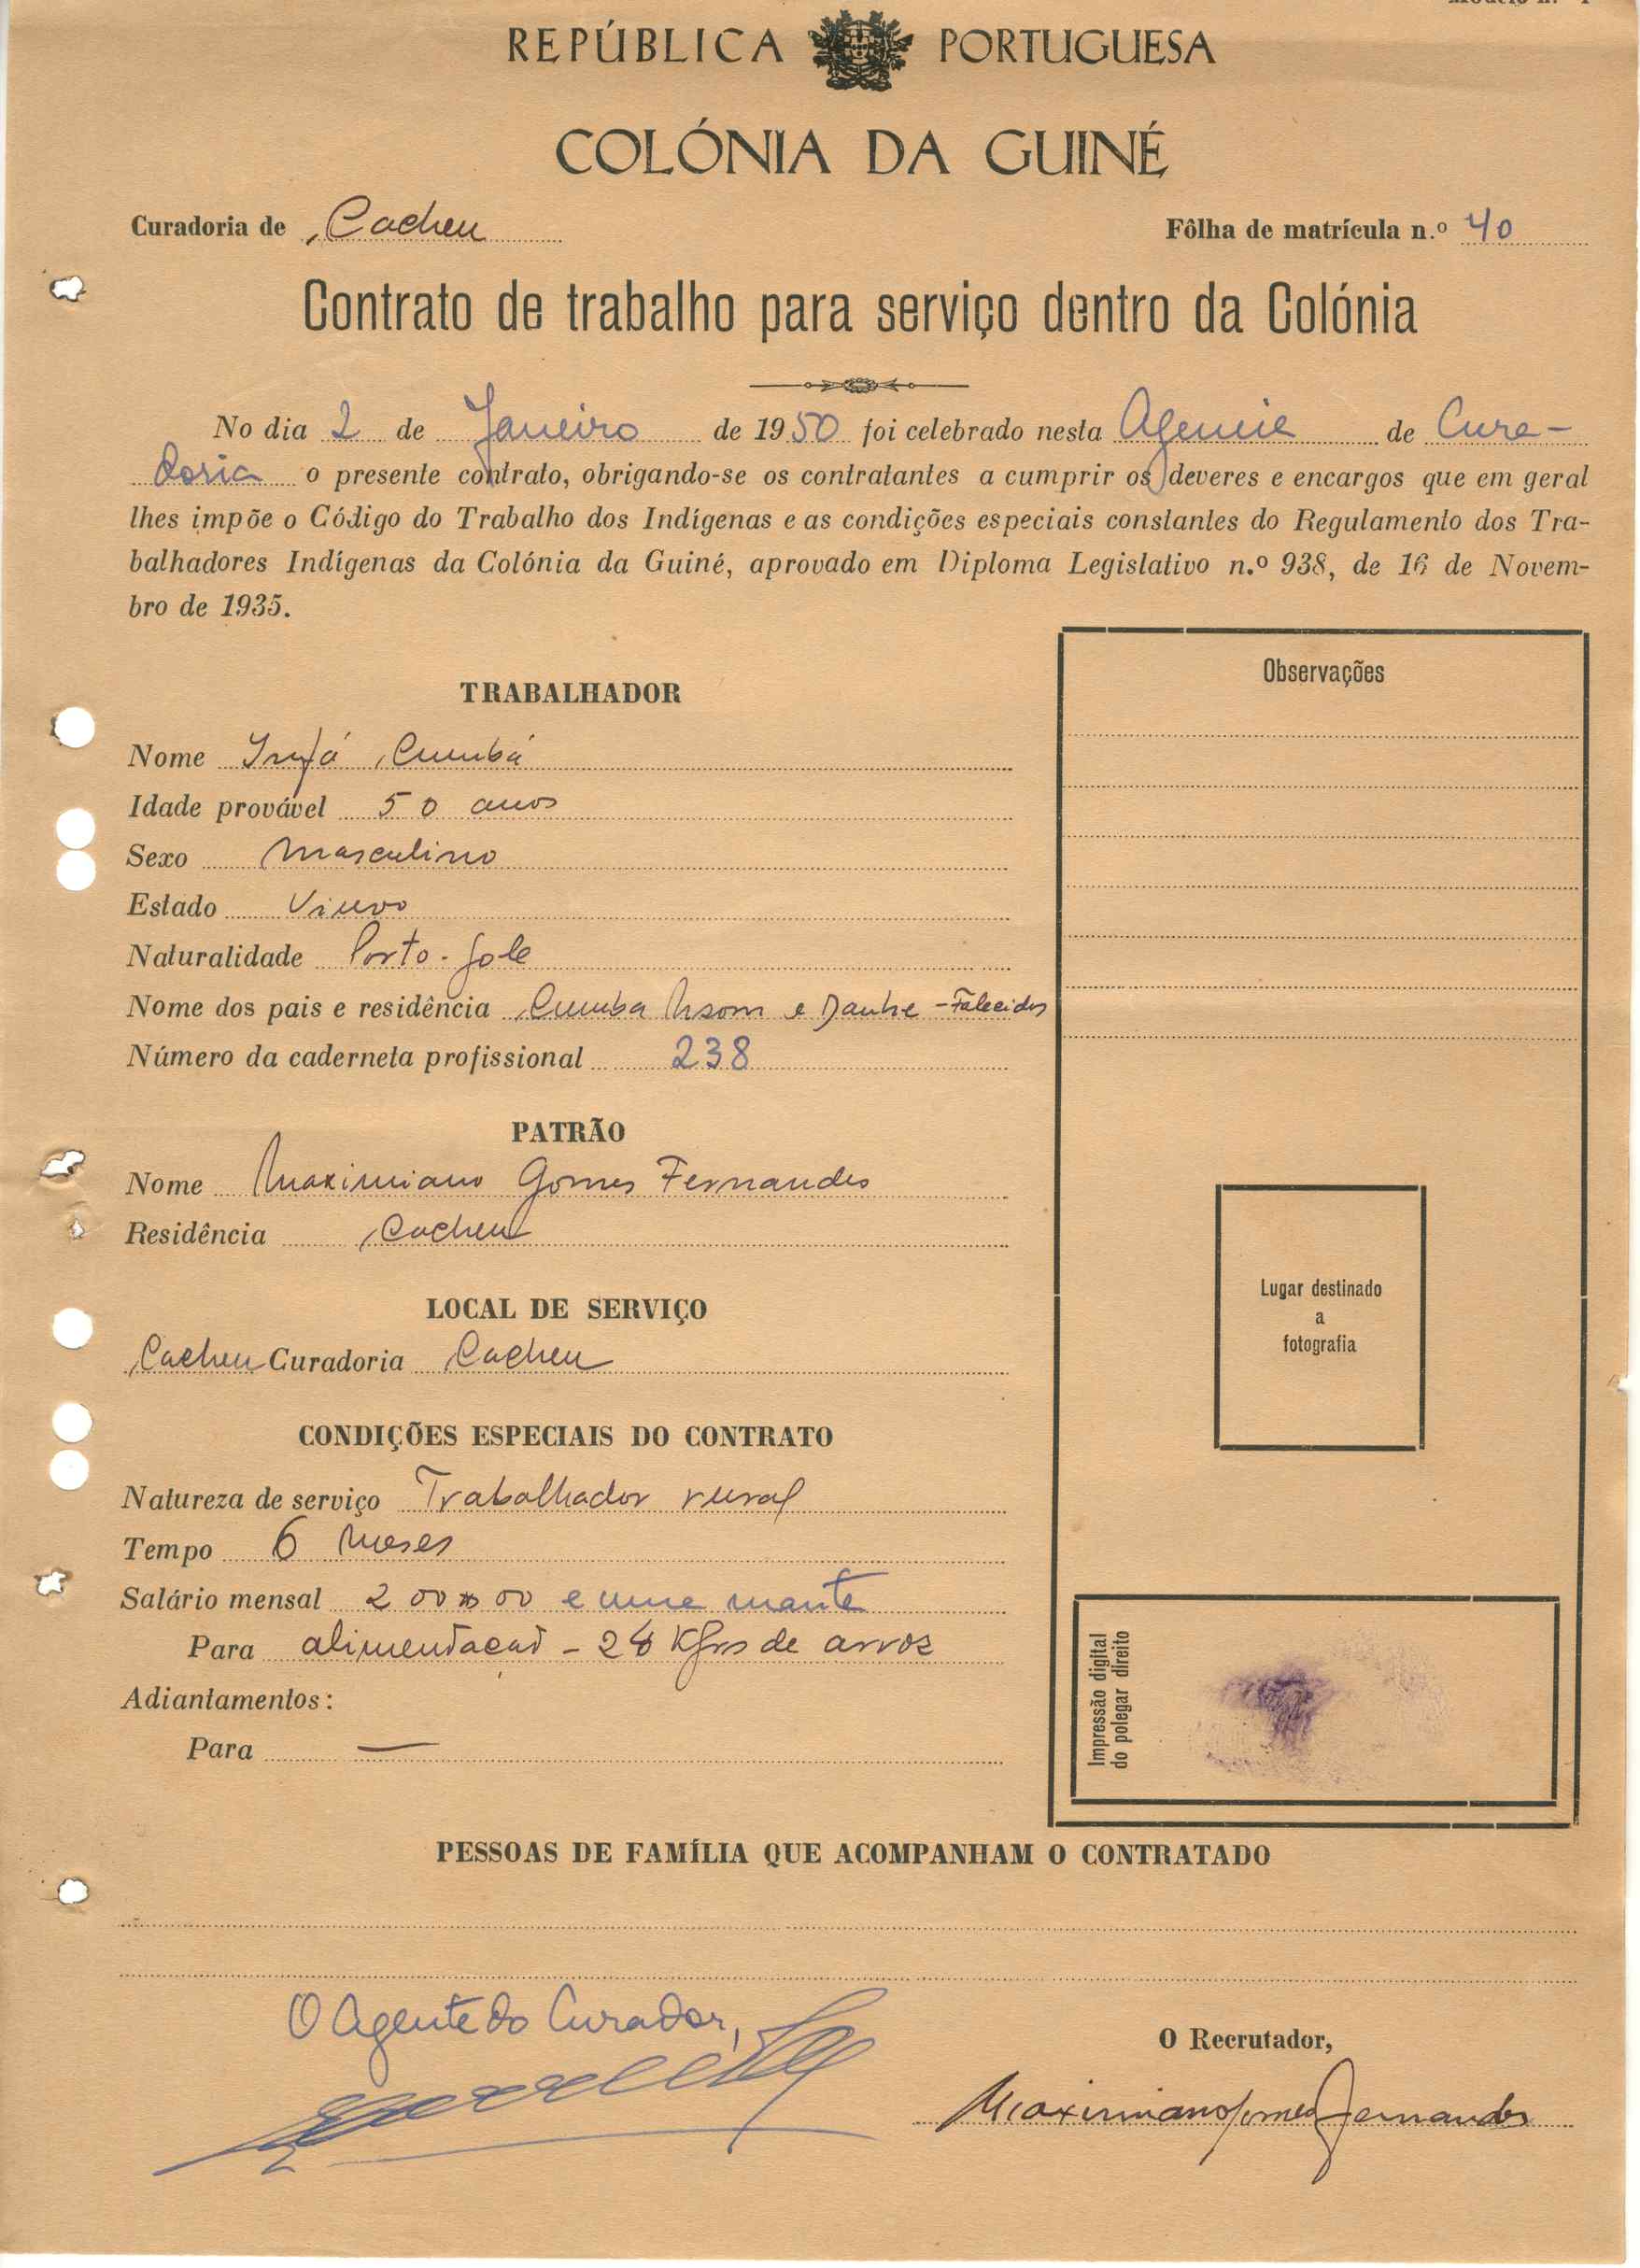 REPÚBLICA PORTUGUESA
COLÓNIA DA GUINÉ
Curadoria de Cacheu Fôlha de matrícula n.º 40
Contrato de trabalho para serviço dentro da Colónia
No dia 2 de Janeiro de 1950 foi celebrado nesta Agencia de Cura-
doria o presente contrato, obrigando-se os contratantes a cumprir os deveres e encargos que em geral
lhes impõe o Código do Trabalho dos Indígenas e as condições especiais constantes do Regulamento dos Tra-
balhadores Indígenas da Colónia da Guiné, aprovado em Diploma Legislativo n.º 938, de 16 de Novem-
bro de 1935.
Observações
TRABALHADOR
Nome Cumbá
Idade provável 50 anos
Sexo Masculino
Estado Viuvo
Naturalidade Porto-Gole
Nome dos pais e residência Cumba e Danhe - Falecidos
Número da caderneta profissional 238
PATRÃO
Nome Maximiano Gomes Fernandes
Residência Cacheu
LOCAL DE SERVIÇO
Cacheu Curadoria Cacheu
Lugar destinado
a
fotografia
CONDIÇÕES ESPECIAIS DO CONTRATO
Natureza de serviço Trabalhador rural
Tempo 6 meses
Salário mensal 200$00 e uma manta
Para alimentação - 28 Kgrs de arroz
Adiantamentos:
Para —
Impressão digital
do polegar direito
PESSOAS DE FAMÍLIA QUE ACOMPANHAM O CONTRATADO
O Agente do Curador,
O Recrutador,
Maximiano Gomes Fernandes